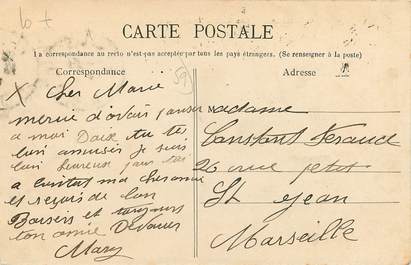 CARTE POSTALE
La correspondance au recto n'est pas acceptée par tous les pays étrangers. (Se renseigner à la poste)
Correspondance
Adresse
Cher Marie
merci d'avoir penser
a moi tu te
bien amuser Je suis
bien heureuse pour toi
a bientot ma
et reçois de bon
Baisers et toujours
ton amie
Mary
Madame
Constant
26 rue petit
St Jean
Marseille